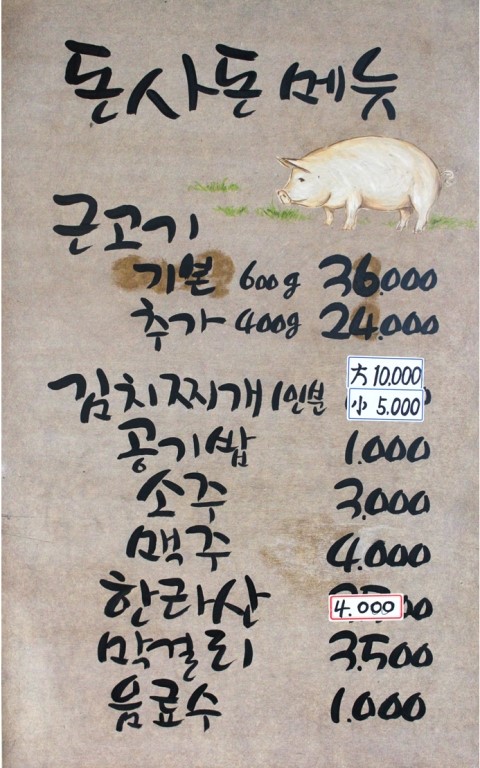 돈사돈 메뉴
근고기
기본 600g 36.000
추가 400g 24.000
김치찌개 1인분 大 10.000
小 5.000
공기밥 1.000
소주 3.000
맥주 4.000
한라산 4.000
막걸리 3.500
음료수 1.000